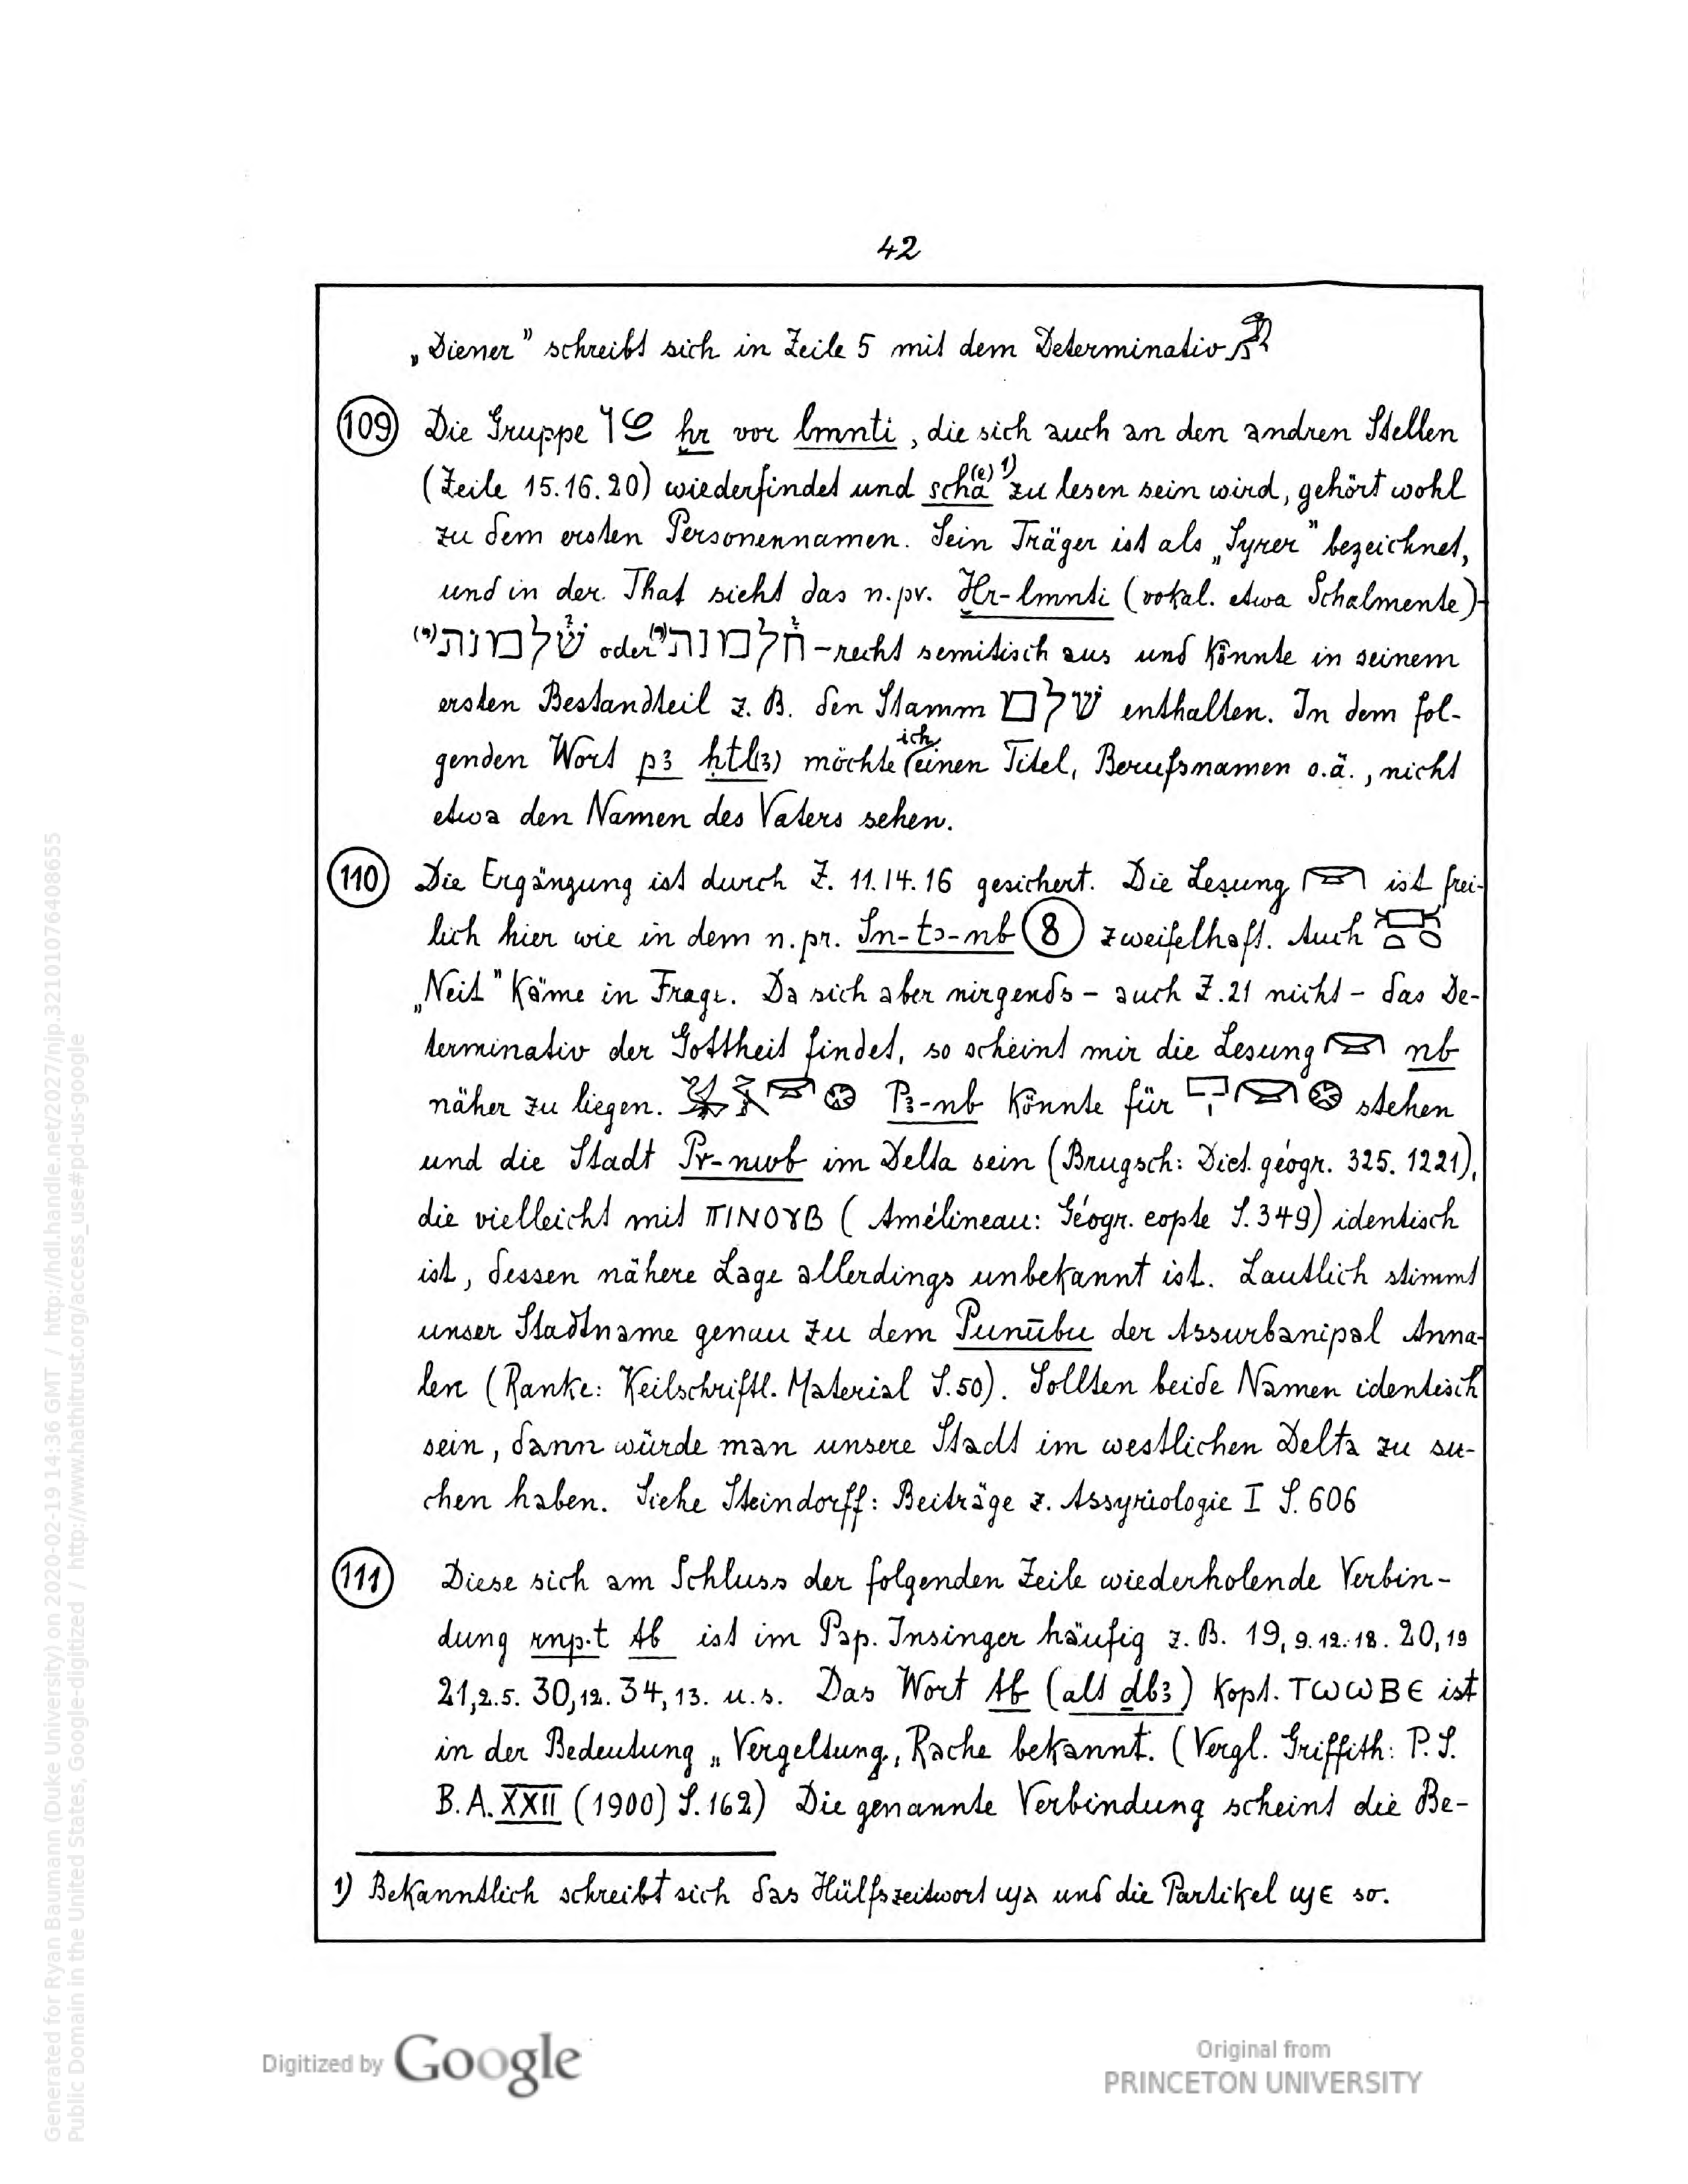 42
„Diener" schreibt sich in Zeile 5 mit dem Determinativ
109 Die Gruppe ḫr vor lmnti, die sich auch an den andren Stellen
(Zeile 15.16.20) wiederfindet und scha(e) 1) zu lesen sein wird, gehört wohl
zu dem ersten Personennamen. Sein Träger ist als „Syrer" bezeichnet,
und in der That sieht das n.pr. Ḫr-lmnti (vokal. etwa Schalmente)-
שלמנת(י) oder חלמנת(י) - recht semitisch aus und könnte in seinem
ersten Bestandteil z. B. den Stamm שלם enthalten. In dem fol-
genden Wort pꜣ ḥtl(ꜣ) möchte ich einen Titel, Berufsnamen o.ä., nicht
etwa den Namen des Vaters sehen.
110 Die Ergänzung ist durch Z. 11.14.16 gesichert. Die Lesung 𓎟 ist frei-
lich hier wie in dem n.pr. Sn-tꜣ-nb 8 zweifelhaft. Auch
„Neit" käme in Frage. Da sich aber nirgends - auch Z.21 nicht - das De-
terminativ der Gottheit findet, so scheint mir die Lesung 𓎟 nb
näher zu liegen. 𓅮𓄿𓎟𓊖 Pꜣ-nb könnte für 𓉐𓏤𓎟𓊖 stehen
und die Stadt Pr-nwb im Delta sein (Brugsch: Dict. géogr. 325. 1221),
die vielleicht mit ⲠⲒⲚⲞⲨⲂ (Amélineau: Géogr. copte S. 349) identisch
ist, dessen nähere Lage allerdings unbekannt ist. Lautlich stimmt
unser Stadtname genau zu dem Punūbu der Assurbanipal Anna-
len (Ranke: Keilschriftl. Material S.50). Sollten beide Namen identisch
sein, dann würde man unsere Stadt im westlichen Delta zu su-
chen haben. Siehe Steindorff: Beiträge z. Assyriologie I S. 606
111 Diese sich am Schluss der folgenden Zeile wiederholende Verbin-
dung rnp.t tb ist im Pap. Insinger häufig z. B. 19,9.12.18. 20,19
21,2.5. 30,12. 34,13. u.s. Das Wort tb (alt ḏbꜣ) kopt. ⲦⲰⲰⲂⲈ ist
in der Bedeutung „Vergeltung, Rache bekannt. (Vergl. Griffith: P.S.
B.A. XXII (1900) S. 162) Die genannte Verbindung scheint die Be-
1) Bekanntlich schreibt sich das Hülfszeitwort ϣⲁ und die Partikel ϣⲉ so.
Generated for Ryan Baumann (Duke University) on 2020-02-19 14:36 GMT / http://hdl.handle.net/2027/njp.32101076408655
Public Domain in the United States, Google-digitized / http://www.hathitrust.org/access_use#pd-us-google
Digitized by Google
Original from
PRINCETON UNIVERSITY